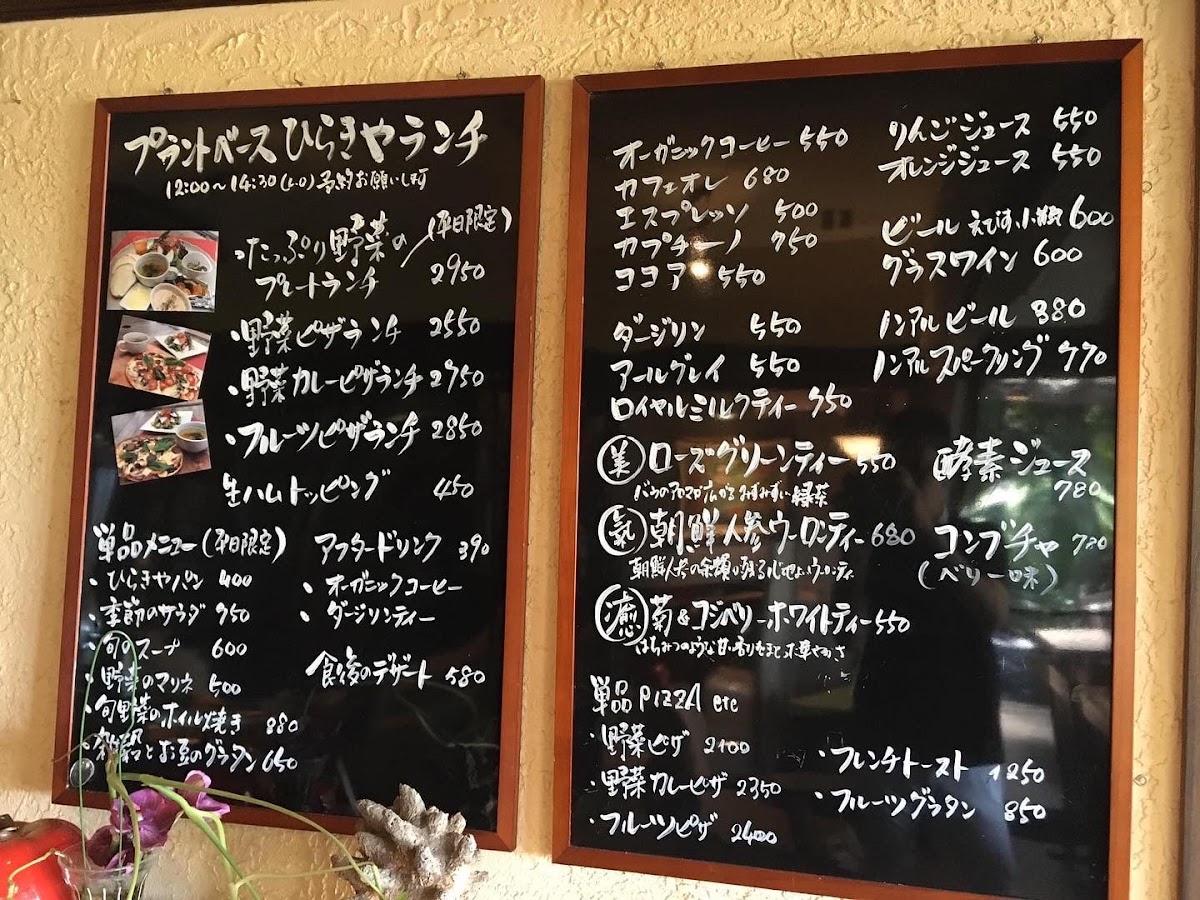 プラントベースひらきやランチ
12:00〜14:30(L.O)予約お願いします
・たっぷり野菜の(平日限定)
プレートランチ 2950
・野菜ピザランチ 2550
・野菜カレーピザランチ 2750
・フルーツピザランチ 2850
生ハムトッピング 450
単品メニュー(平日限定)
・ひらきやパン 400
・季節のサラダ 950
・旬のスープ 600
・野菜のマリネ 500
・旬野菜のホイル焼き 880
・雑穀とお豆のグラタン 650
アフタードリンク 390
・オーガニックコーヒー
・ダージリンティー
食後のデザート 580
オーガニックコーヒー 550
カフェオレ 680
エスプレッソ 500
カプチーノ 750
ココア 550
ダージリン 550
アールグレイ 550
ロイヤルミルクティー 750
美 ローズグリーンティー 550
バラのアロマ広がるみずみずしい緑茶
氣 朝鮮人参ウーロンティー 680
朝鮮人参の余韻が残る心地よいウーロンティ
癒 菊&コジベリーホワイトティー 550
はちみつのような甘い香りをまとった華やかさ
単品 PIZZA etc
・野菜ピザ 2100
・野菜カレーピザ 2350
・フルーツピザ 2400
りんごジュース 550
オレンジジュース 550
ビール えびす、小瓶 600
グラスワイン 600
ノンアルビール 880
ノンアルスパークリング 770
酵素ジュース
780
コンブチャ 780
(ベリー味)
・フレンチトースト 1250
・フルーツグラタン 850